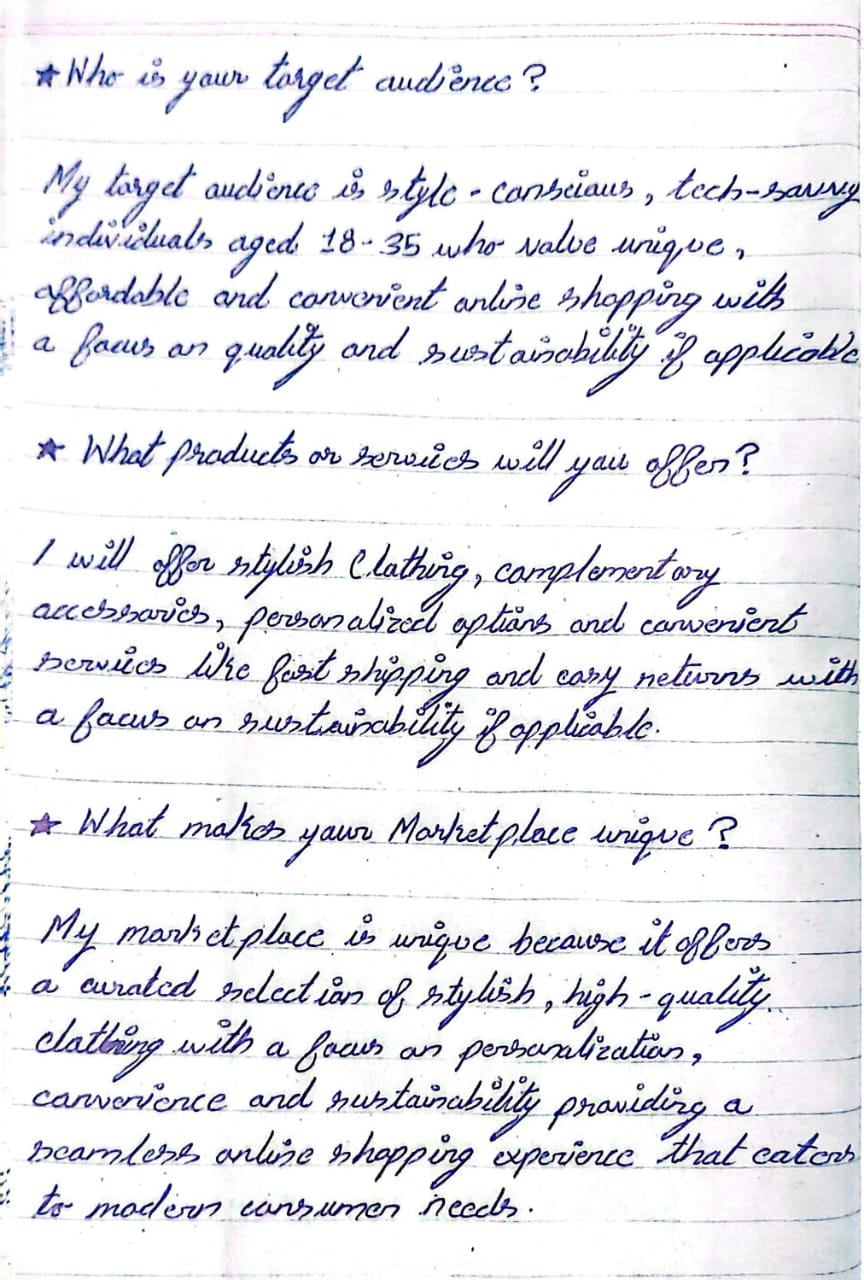 ★ Who is your target audience?
My target audience is style-conscious, tech-savvy
individuals aged 18-35 who value unique,
affordable and convenient online shopping with
a focus on quality and sustainability if applicable
★ What products or services will you offer?
I will offer stylish Clothing, complementary
accessories, personalized options and convenient
services like fast shipping and easy returns with
a focus on sustainability if applicable.
★ What makes your Marketplace unique?
My marketplace is unique because it offers
a curated selection of stylish, high-quality
clothing with a focus on personalization,
convenience and sustainability providing a
seamless online shopping experience that caters
to modern consumer needs.